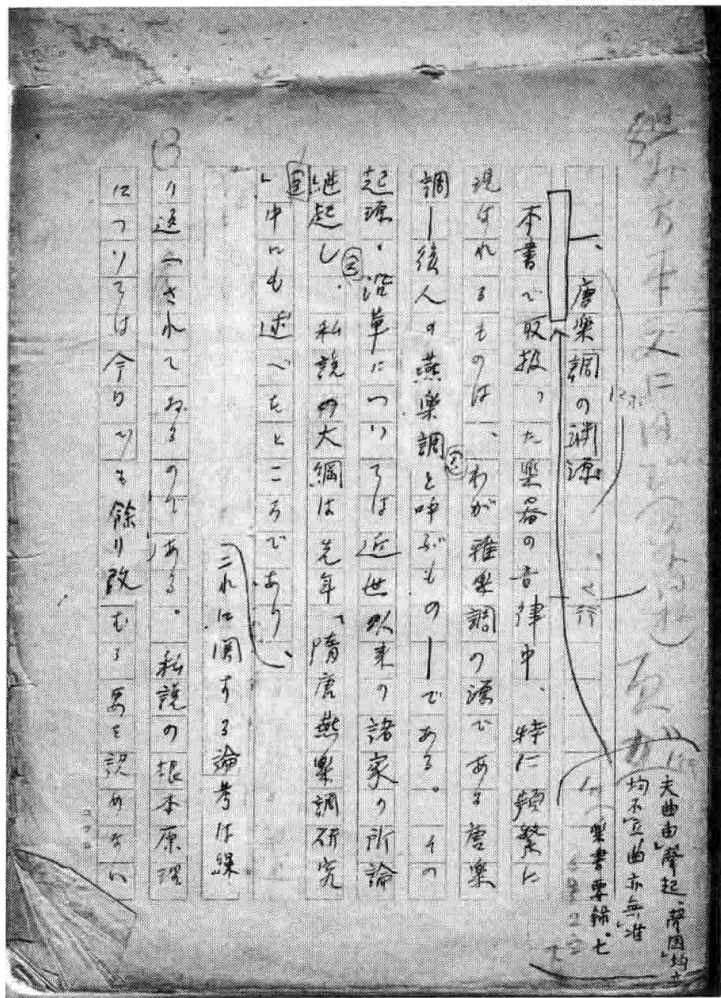 夫曲由聲起、聲因均立
均不立曲亦無准
楽書要録、七
一、唐楽調の淵源
本書で取扱った楽器の音律中、特に頻繁に
現はれるものは、わが雅楽調の源である唐楽
調ー後人の燕楽調と呼ぶものーである。その
起源・沿革については近世以来の諸家の所論
継起し、私説の大綱は先年「隋唐燕楽調研究
」中にも述べたところであり、
これに関する論考は繰
り返へされておるのである。私説の根本原理
については今日でも餘り改むる要を認めない
13